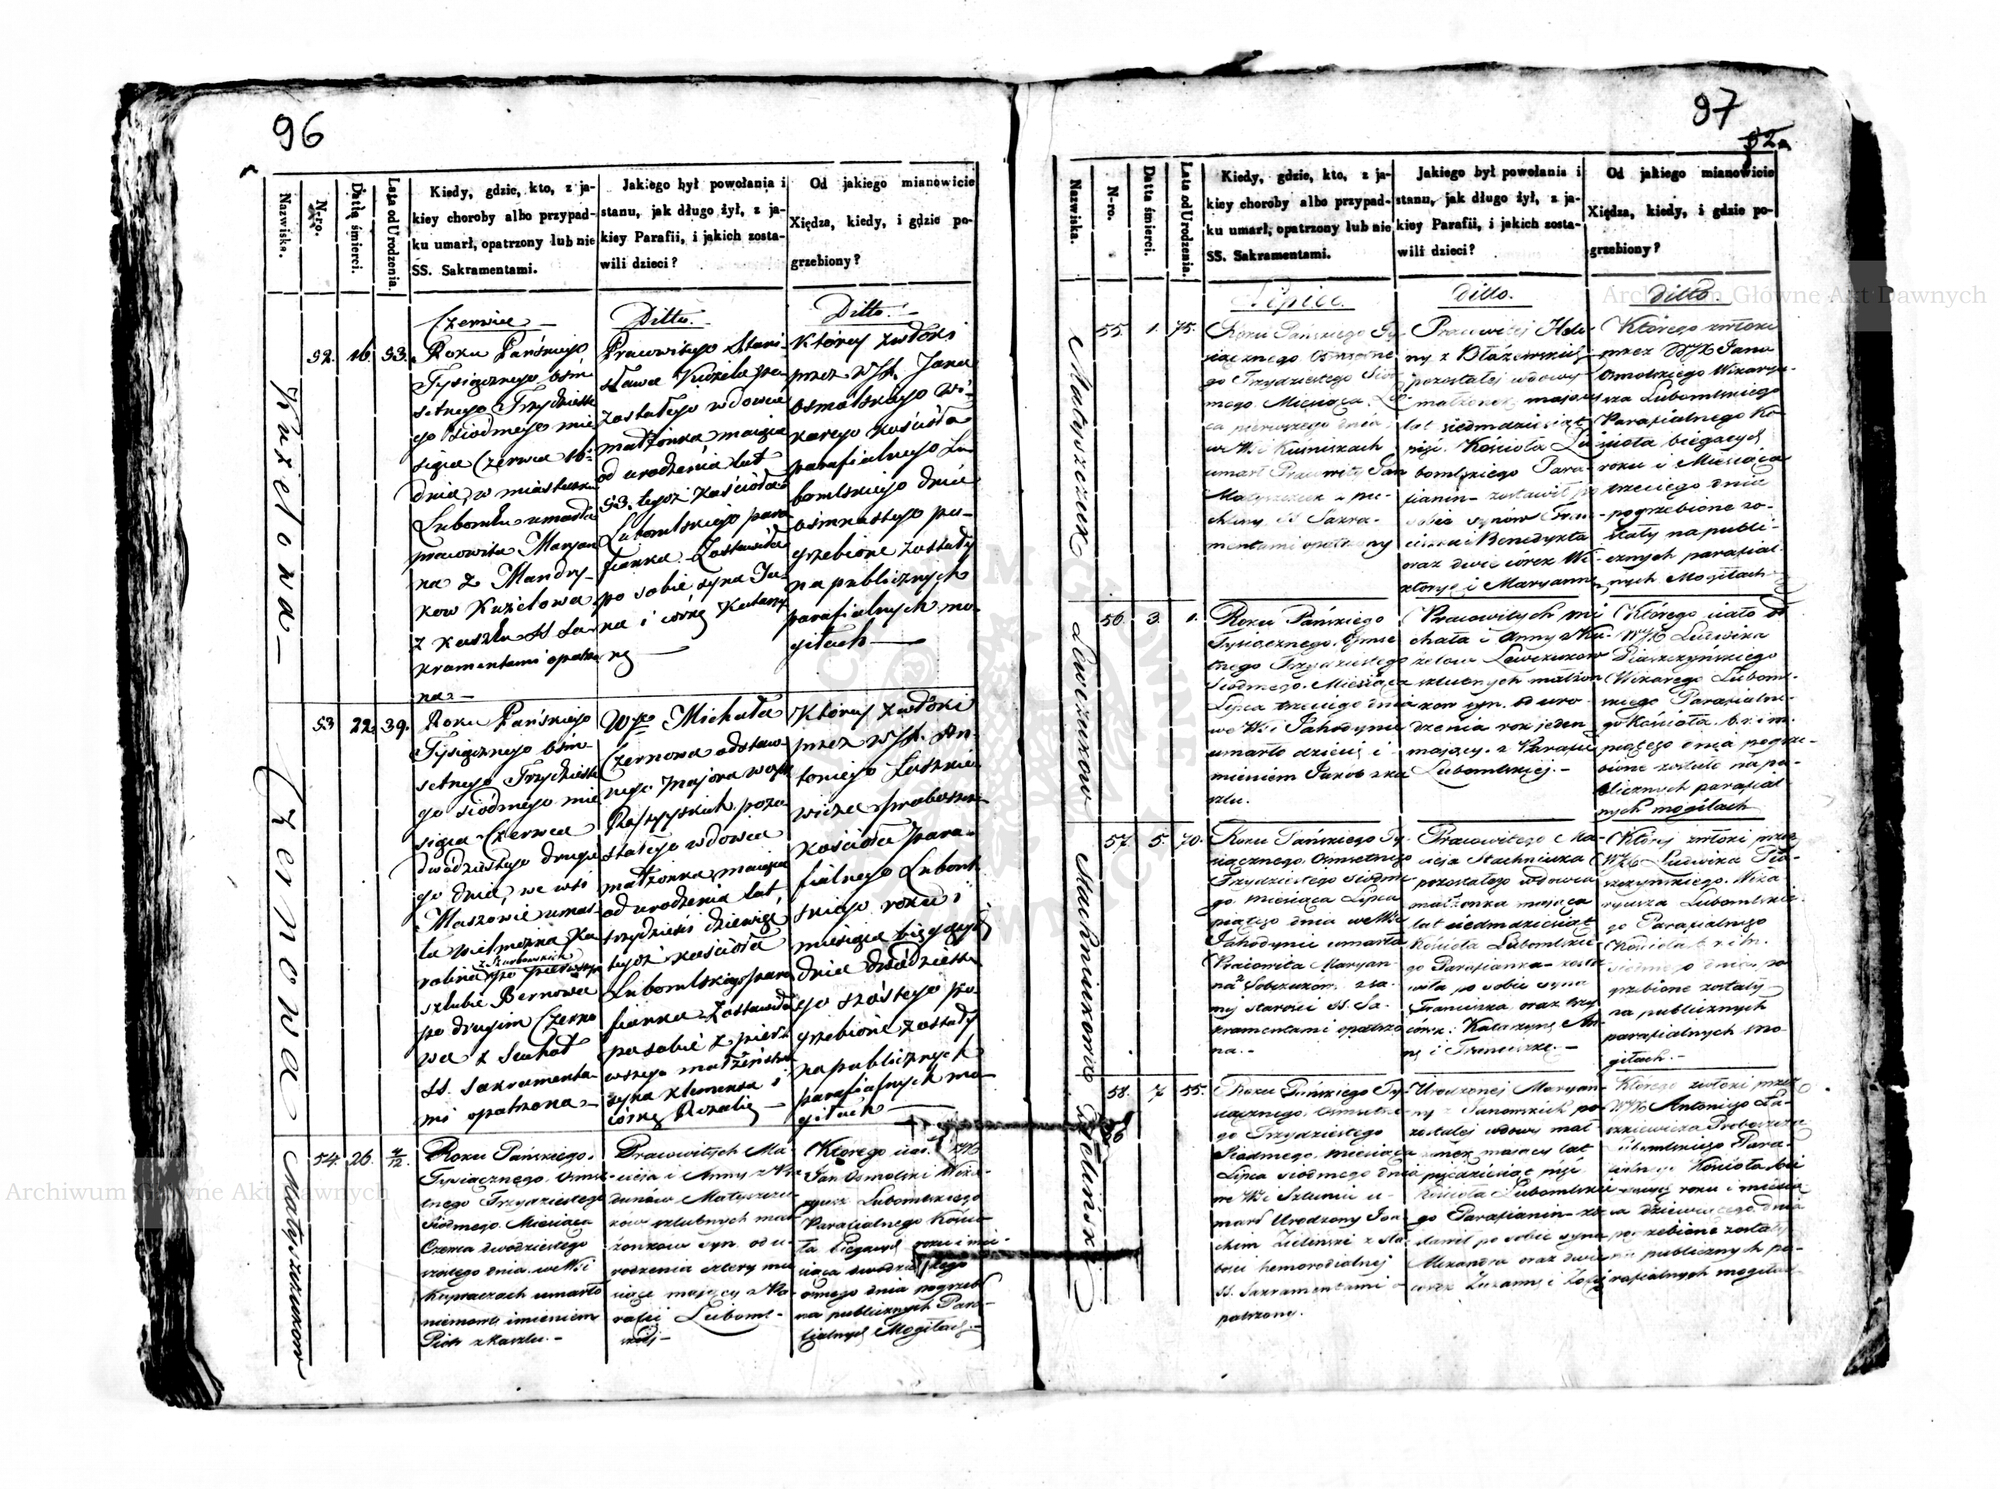 96
Nazwiska.
N-ro.
Datta śmierci.
Lata od Urodzenia.
Kiedy, gdzie, kto, z ja-
kiey choroby albo przypad-
ku umarł, opatrzony lub nie
SS. Sakramentami.
Jakiego był powołania i
stanu, jak długo żył, z ja-
kiey Parafii, i jakich zosta-
wili dzieci?
Od jakiego mianowicie
Xiędza, kiedy, i gdzie po-
grzebiony?
Czerwiec
Ditto.
Ditto.
Kuzielowa
52. 16. 53.
Roku Pańskiego
Tysiącznego ośm
setnego Trzydzieste
go siódmego mie
siąca Czerwca 16.
dnia, w miasteczku
Lubomlu umarła
pracowita Maryan
na z Mandry-
kow Kuzielowa
z kaszlu SS Sa-
kramentami opatrzo
na
Pracowitego Stani-
sława Kuziela po-
zostałego wdowca
małżonka mająca
od urodzenia lat
53. tegoż kościoła
Lubomlskiego para
fianka. Zostawiła
po sobie syna Ja-
na i córkę Katarzy
nę
Ktorey zwłoki
przez WJX. Jana
Osmolskiego Wi-
karego kościoła
parafialnego Lu-
bomlskiego dnia
ośmnastego po-
grzebione zostały
na publicznych
parafialnych mo-
giłach
Czernowa
53 22. 39.
Roku Pańskiego
Tysiącznego ośm-
setnego Trzydzieste
go siódmego mie
siąca Czerwca
dwódziestego drugie
go dnia, we wsi
Maszowie umar-
ła wielmożna Ka
rolina po pierwszym
szlubie Bernowa
po drugim Czerno
wa z Suchot
SS. Sakramenta-
mi opatrzona
Michała
Czernowa odstaw
nego Majora woysk
Rossyyskich pozo
stałego wdowca
małżonka mająca
od urodzenia lat
trzydzieści dziewięć
tegoż kościoła
Lubomlskiego para
fianka Zostawiła
po sobie z pierw
wszego małżeństwa
syna Klemensa i
córkę Rozalię
Ktorey zwłoki
przez WJX. An-
toniego Laszkie-
wicza Proboszcza
kościoła Para-
fialnego Luboml
skiego roku i
miesiąca bieżących
dnia dwódzieste
go szóstego po
grzebione zostały
na publicznych
parafialnych mo
giłach
Matyszczukow
54. 26. 4/12.
Roku Pańskiego
Tysiącznego Ośmse-
tnego Trzydziestego
Siódmego Miesiąca
Czerwca dwódziestego
szóstego dnia we Wsi
umarło
niemowle imieniem
Piotr z kaszlu.
Pracowitych Ma-
cieja i Anny z
Matyszczu-
ków szlubnych mał-
żonków syn od u-
rodzenia cztery mie
siące mający z Pa-
rafii Luboml-
skiej
Którego ciało WJX
Jan Osmolski Wika-
ryusz Lubomlskiego
Parafialnego Kościo-
ła bieżących roku i mie-
siąca dwódziestego
ósmego dnia pogrzebł
na publicznych Para-
fialnych Mogiłach
97
Nazwiska.
N-ro.
Datta śmierci.
Lata od Urodzenia.
Kiedy, gdzie, kto, z ja-
kiey choroby albo przypad-
ku umarł, opatrzony lub nie
SS. Sakramentami.
Jakiego był powołania i
stanu, jak długo żył, z ja-
kiey Parafii, i jakich zosta-
wili dzieci?
Od jakiego mianowicie
Xiędza, kiedy, i gdzie po-
grzebiony?
Lipiec.
Ditto.
Ditto
Matyszczuk
55. 1. 75.
Roku Pańskiego Ty-
siącznego Ośmsetne
go Trzydziestego Siód
mego Miesiąca Lip
ca pierwszego dnia
we Wsi Kuśniszczach
umarł Pracowity Jan
Matyszczuk z pu-
chliny SS Sakra-
mentami opatrzony
Pracowitej Hele-
ny z
pozostałej wdowy
małżonek mający
lat siedmdziesiąt
pięć. Kościoła Lu
bomlskiego Para-
fianin zostawił po
sobie synów Fran
ciszka i Benedykta
oraz dwie córek Wi-
ktoryę i Maryannę
Którego zwłoki
przez WJX Jana
Osmolskiego Wikaryu-
sza Lubomlskiego
Parafialnego Ko
ścioła bieżących
roku i Miesiąca
trzeciego dnia
pogrzebione zo-
stały na publi-
cznych parafial-
nych Mogiłach
Lewczukow
56. 3. 1.
Roku Pańskiego
Tysiącznego Ośmse-
tnego Trzydziestego
Siódmego Miesiąca
Lipca trzeciego dnia
we Wsi Jahodynie
umarło dziecię i-
mieniem Jakób z ka
szlu.
Pracowitych Mi
chała i Anny z Ku-
zielow Lewczukow
szlubnych małżon
kow syn, od uro-
dzenia rok jeden
mający, z Parafii
Lubomlskiej.
Którego ciało
WJX Ludwika
Wikarego Luboml-
skiego Parafialne-
go Kościoła b. r. i m.
piątego dnia pogrze-
bione zostało na pu-
blicznych parafial
nych mogiłach
Stachniukowa
57. 5. 70.
Roku Pańskiego Ty-
siącznego Ośmsetnego
Trzydziestego Siódme
go miesiąca Lipca
piątego dnia we Wsi
Jahodynie umarła
Pracowita Maryan-
na z sta-
rej starości SS. Sa-
kramentami opatrzo
na.
Pracowitego Ma-
cieja Stachniuka
pozostałego wdowca
małżonka mająca
lat siedmdziesiąt
Kościoła Lubomlskie-
go Parafianka zosta
wiła po sobie syna
Franciszka oraz trzy
córek: Katarzynę An-
nę i Franciszkę.
Której zwłoki przez
WJX Ludwika
Wika
ryusza Lubomlskie-
go Parafialnego
Kościoła b. r. i m.
siódmego dnia po
grzebione zostały
na publicznych
parafialnych Mo-
giłach.
Zieliński
58. 7 55.
Roku Pańskiego Ty-
siącznego Ośmsetne-
go Trzydziestego
Siódmego miesiąca
Lipca siódmego dnia
we Wsi Sztuniu u-
marł Urodzony Joa-
chim Zieliński z sła-
bości hemoroidalnej
SS. Sakramentami o-
patrzony.
Urodzonej Maryan-
ny z Janowskich po
zostałej wdowy mał
żonek mający lat
pięćdziesiąt pięć
Kościoła Lubomlskie-
go Parafianin zo-
stawił po sobie syna
Alexandra oraz dwie
córek Zuzannę i Zofię
Którego zwłoki przez
WJX Antoniego La-
szkiewicza Proboszcza
Lubomlskiego Para-
fialnego Kościoła bie
żących roku i miesią
ca dziewiątego dnia
pogrzebione zostały
na publicznych pa-
rafialnych mogiłach
Archiwum Główne Akt Dawnych
Archiwum Główne Akt Dawnych